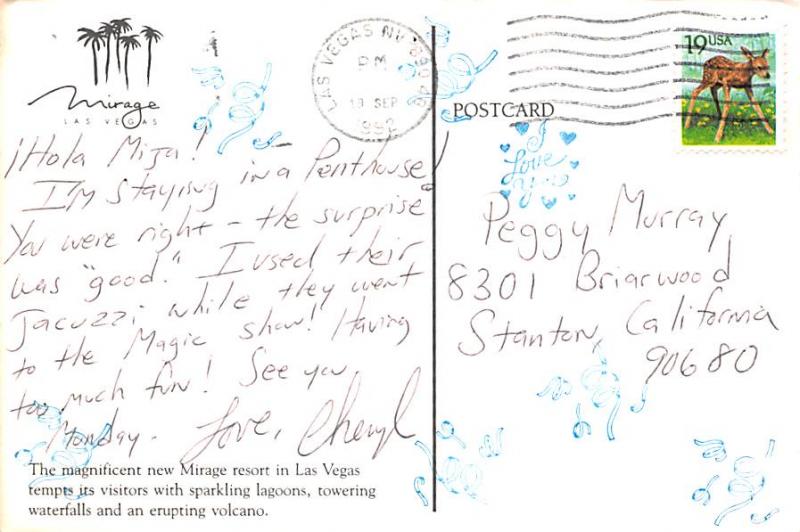 Mirage
LAS VEGAS
¡Hola Mija!
I'm staying in a Penthouse!
You were right - the surprise
was "good." I used their
Jacuzzi while they went
to the Magic show! Having
too much fun! See you
Monday. Love, Cheryl
The magnificent new Mirage resort in Las Vegas
tempts its visitors with sparkling lagoons, towering
waterfalls and an erupting volcano.
LAS VEGAS NV
PM
SEP
1992
19USA
POSTCARD
I
Love
You
Peggy Murray
8301 Briarwood
Stanton, California
90680